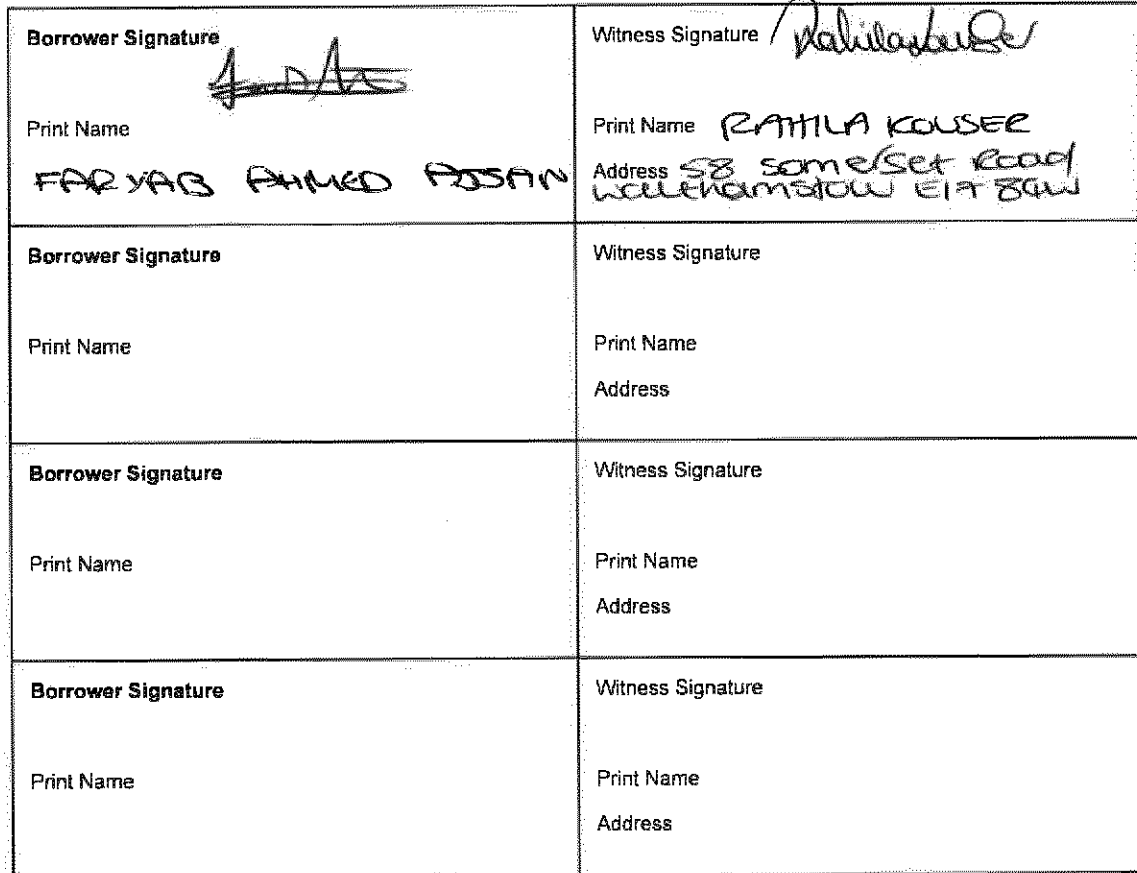 Borrower Signature
Print Name
FARYAB AHMED
Witness Signature
Print Name RAHILA KOUSER
Address 58 somerset Road
Walthamstow E17
Borrower Signature
Print Name
Witness Signature
Print Name
Address
Borrower Signature
Print Name
Witness Signature
Print Name
Address
Borrower Signature
Print Name
Witness Signature
Print Name
Address